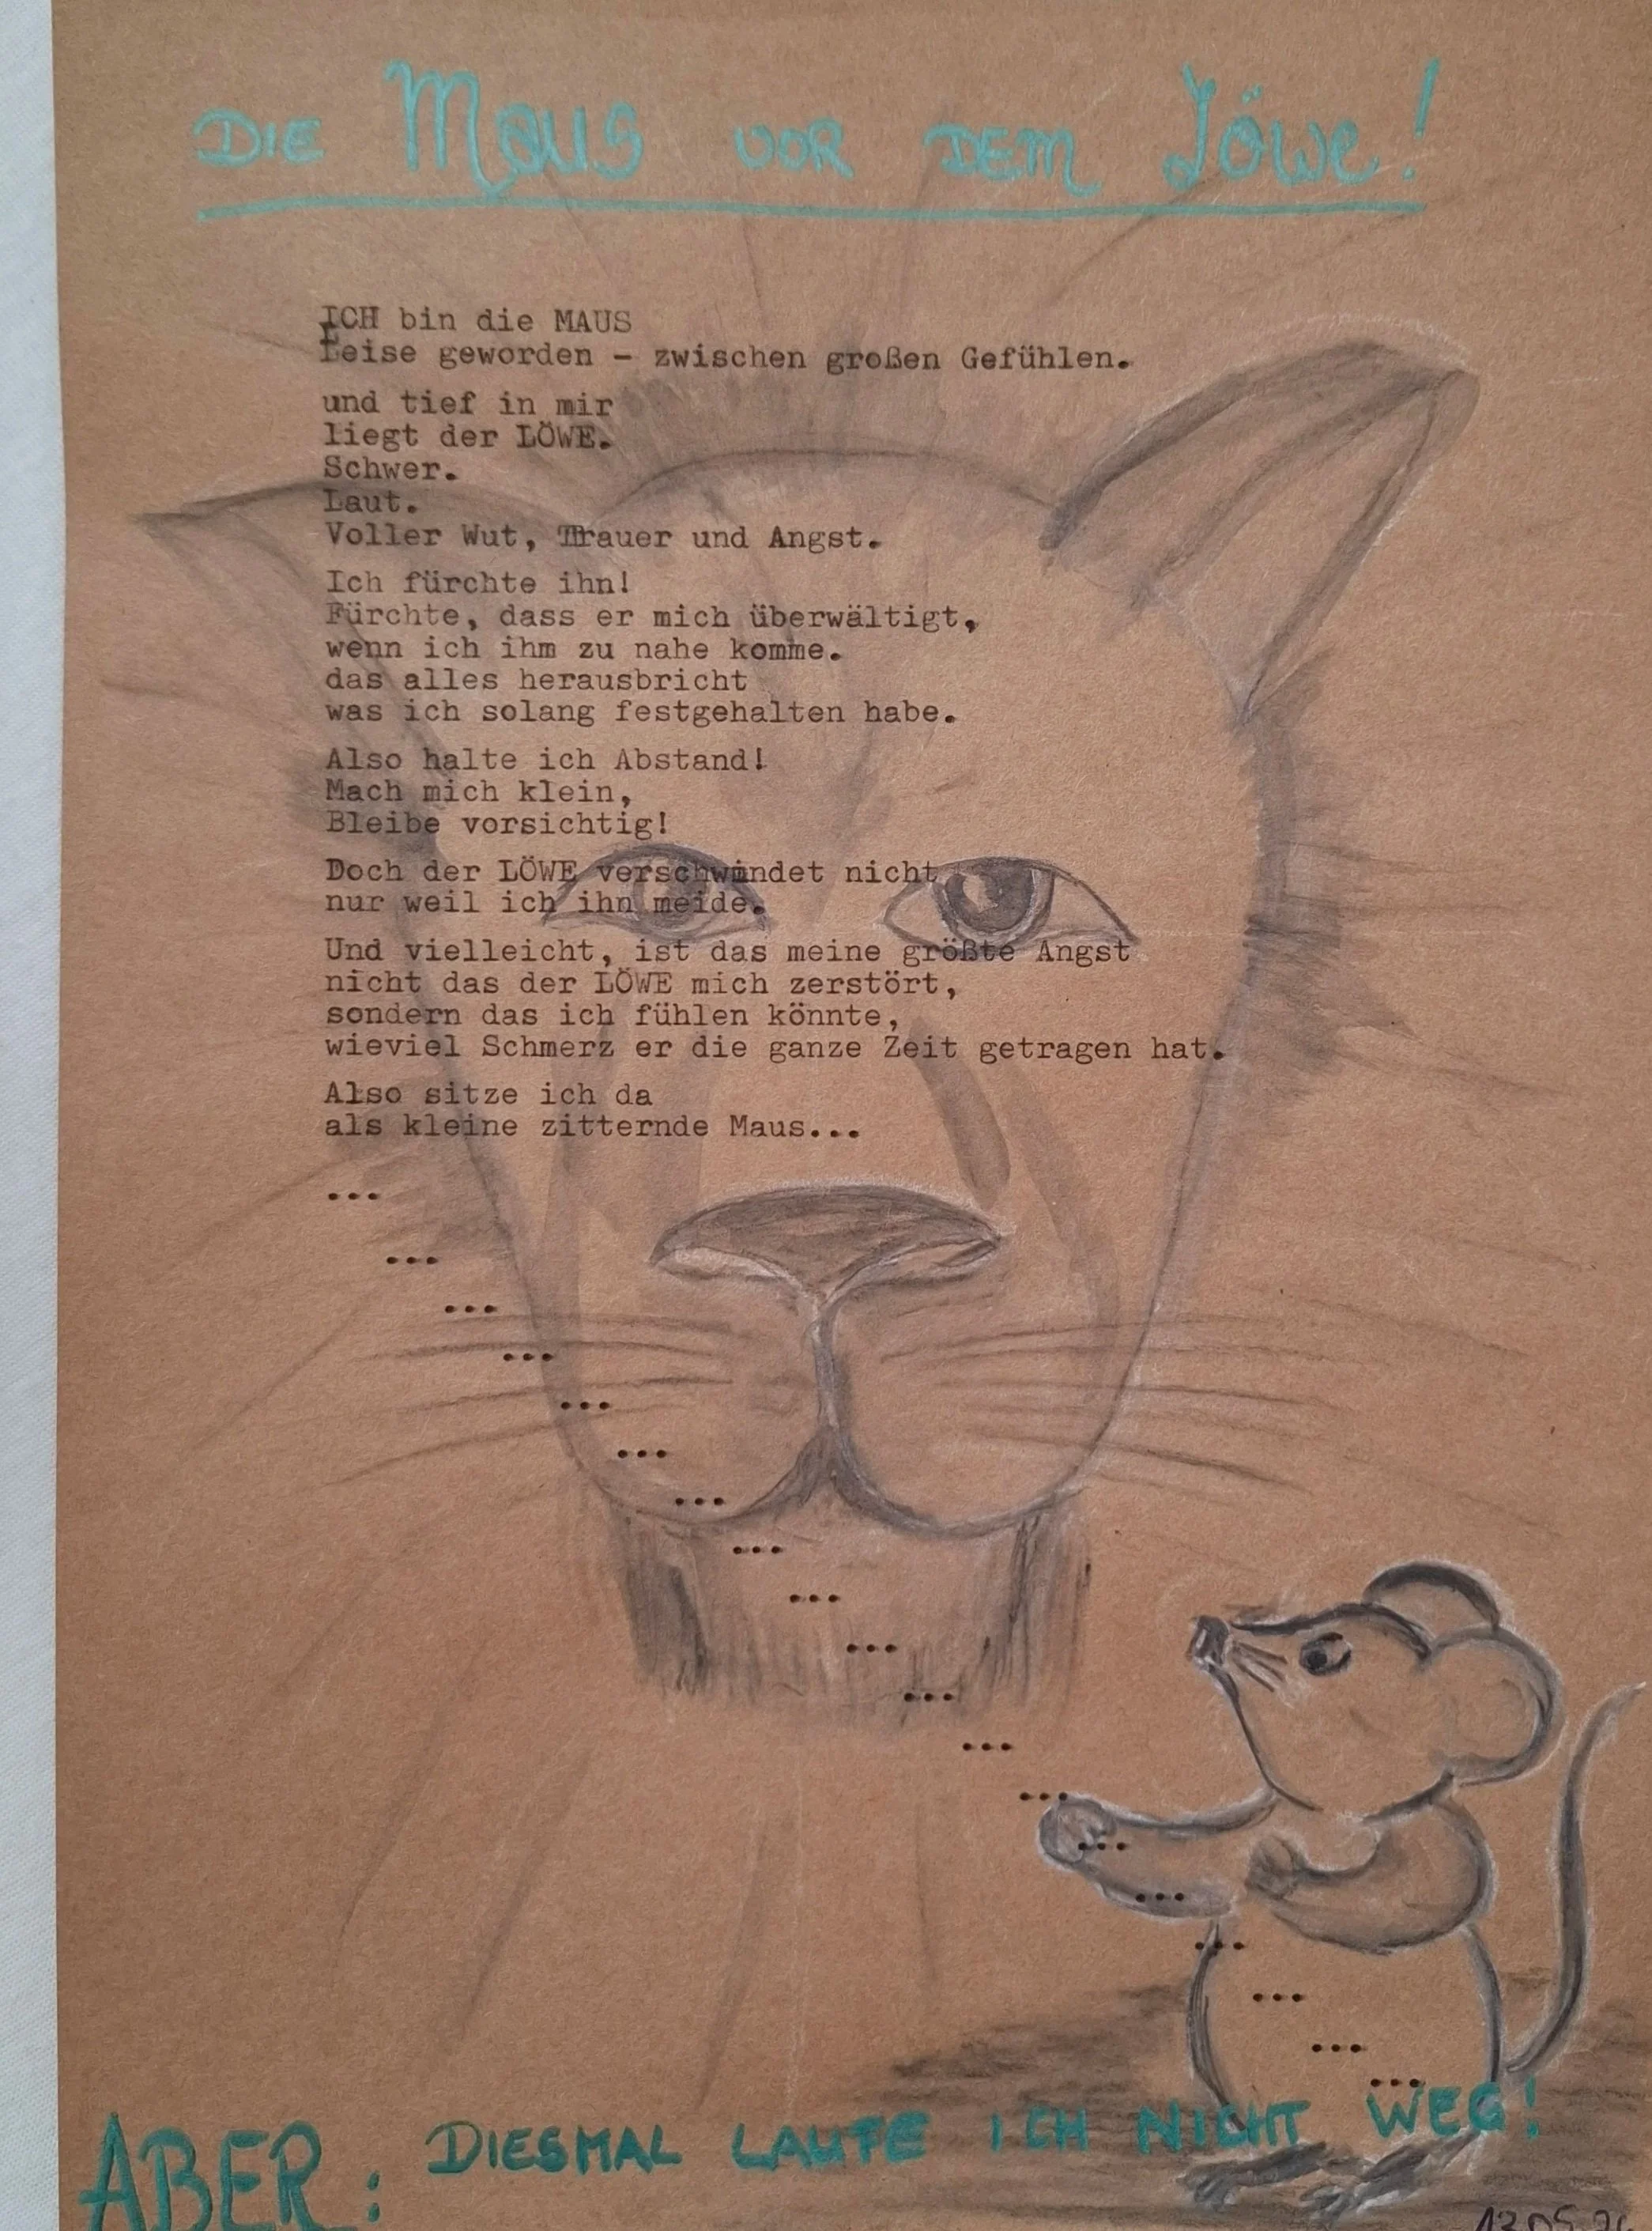 DIE Maus VOR DEM Löwe!
ICH bin die MAUS
Leise geworden – zwischen großen Gefühlen.
und tief in mir
liegt der LÖWE.
Schwer.
Laut.
Voller Wut, Trauer und Angst.
Ich fürchte ihn!
Fürchte, dass er mich überwältigt,
wenn ich ihm zu nahe komme.
das alles herausbricht
was ich solang festgehalten habe.
Also halte ich Abstand!
Mach mich klein,
Bleibe vorsichtig!
Doch der LÖWE verschwindet nicht,
nur weil ich ihn meide.
Und vielleicht, ist das meine größte Angst
nicht das der LÖWE mich zerstört,
sondern das ich fühlen könnte,
wieviel Schmerz er die ganze Zeit getragen hat.
Also sitze ich da
als kleine zitternde Maus...
...
...
...
...
...
...
...
...
...
...
...
...
...
...
...
...
...
...
...
ABER: DIESMAL LAUFE ICH NICHT WEG!